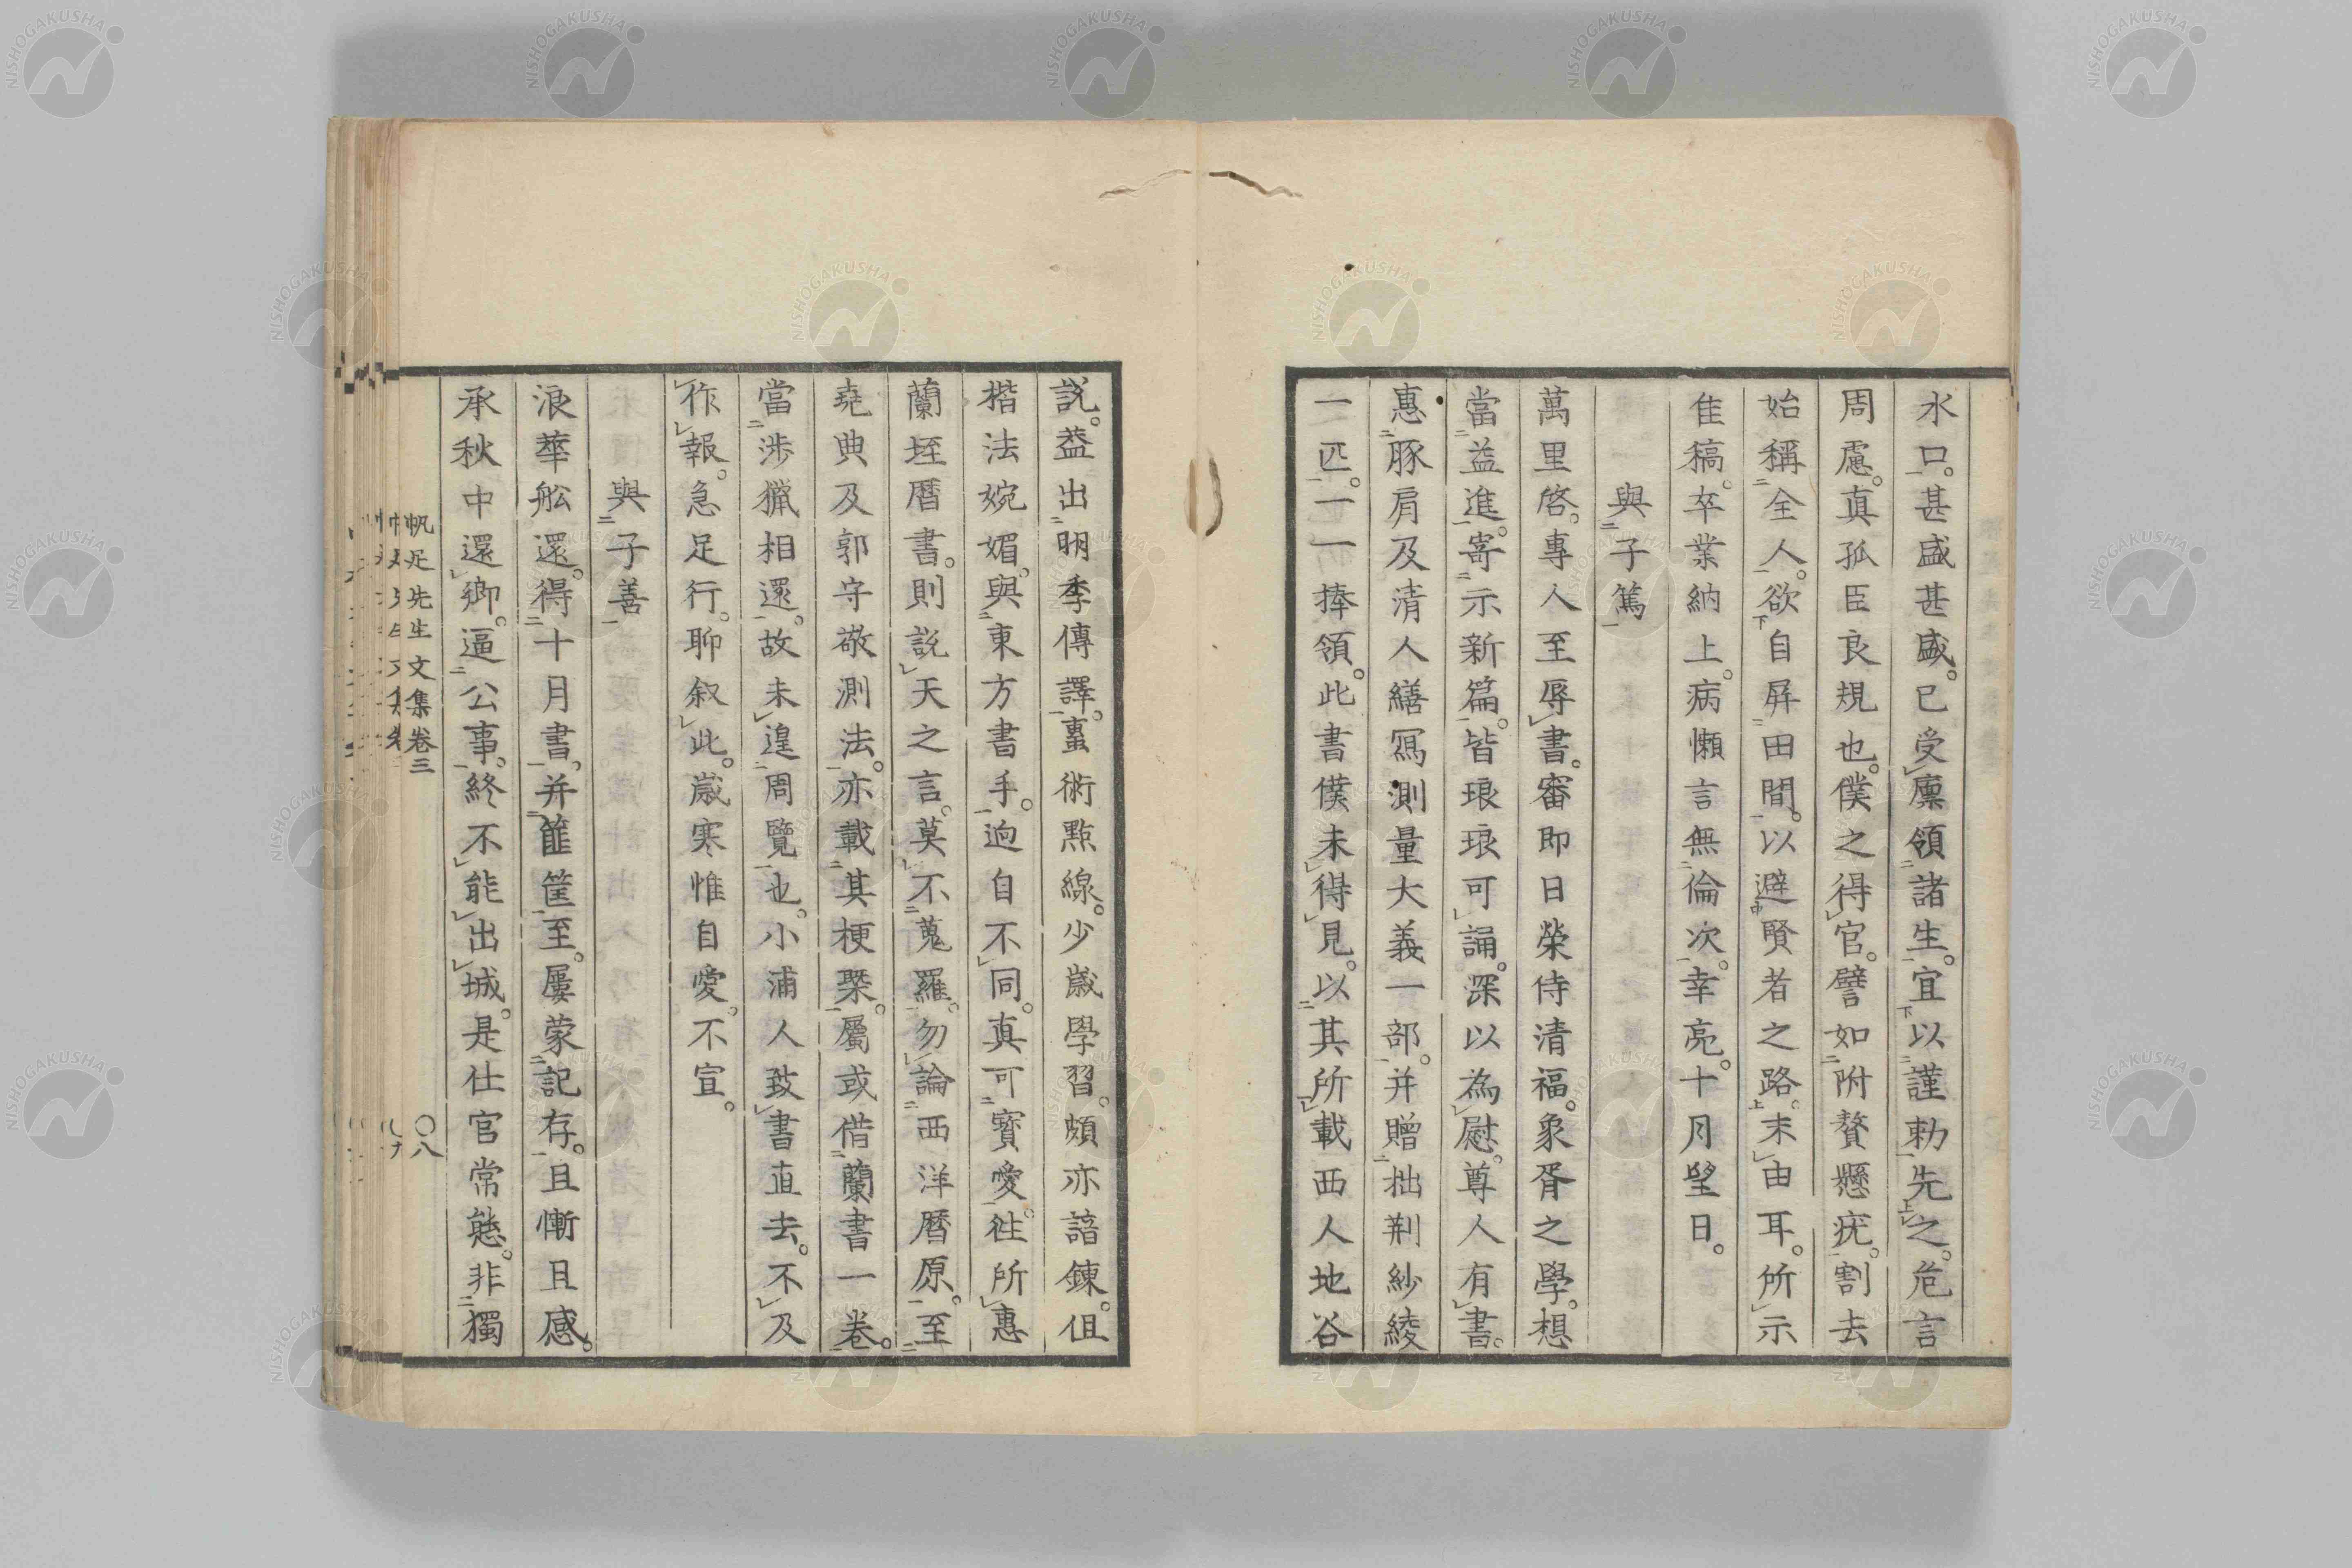 水口。甚盛甚盛。已受廩領諸生。宜以謹勅先之。危言
周慮。真孤臣良規也。僕之得官。譬如附贅懸疣。割去
始稱全人。欲自屏田間。以避賢者之路。末由耳。所示
隹稿。卒業納上。病懶言無倫次。幸亮。十月望日。
與子篤
萬里啓。專人至辱書。審即日榮侍清福。象胥之學。想
當益進。寄示新篇。皆琅琅可誦。深以為慰。尊人有書。
惠豚肩及清人繕寫測量大義一部。并贈拙荆紗綾
一匹。一一捧領。此書僕未得見。以其所載西人地谷
說。葢出明季傳譯。蠆術㸃線。少歲學習。頗亦諳鍊。但
楷法婉媚。與東方書手。逈自不同。真可寳愛。徃所惠
蘭垤暦書。則說天之言。莫不蒐羅。勿論西洋暦原。至
堯典及郭守敬測法。亦載其梗槩。屬或借蘭書一卷。
當涉獵相還。故未遑周覽也。小浦人致書直去。不及
作報。急足行。聊叙此。嵗寒惟自愛。不宣。
與子善
浪華舩還。得十月書。并䉆筐至。屢蒙記存。且慚且感。
承秋中還郷。逼公事。終不能出城。是仕官常態。非獨
帆足先生文集卷三
〇八